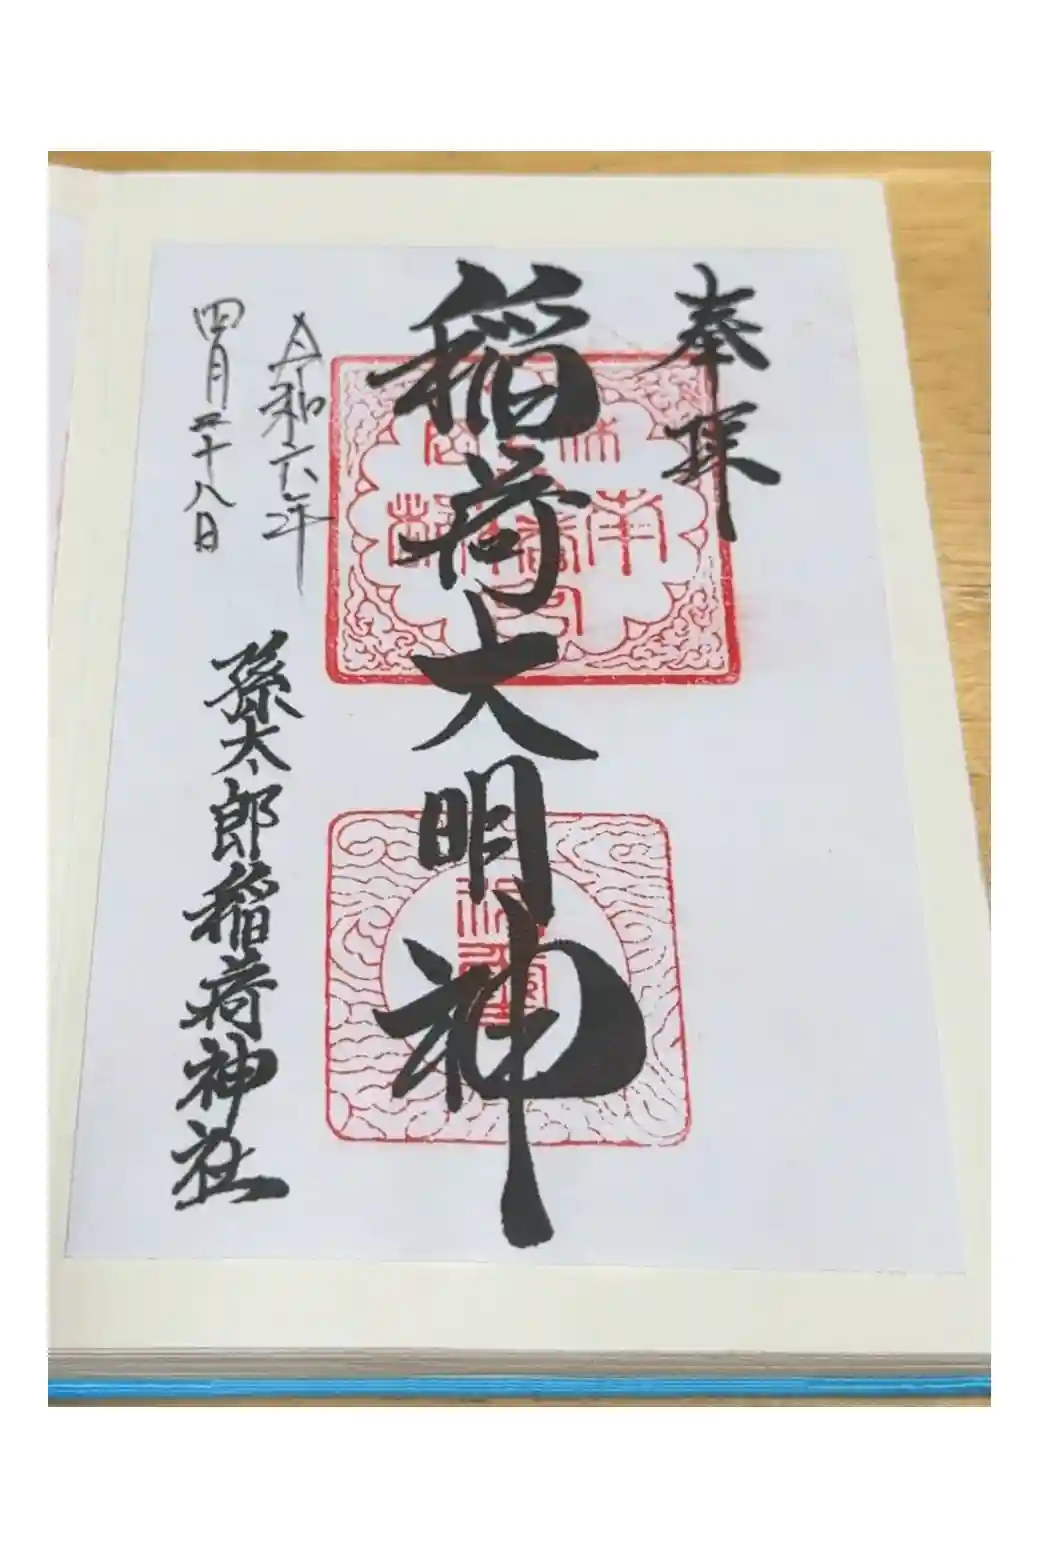 奉拝
稲荷大明神
令和六年
四月二十八日
孫太郎稲荷神社